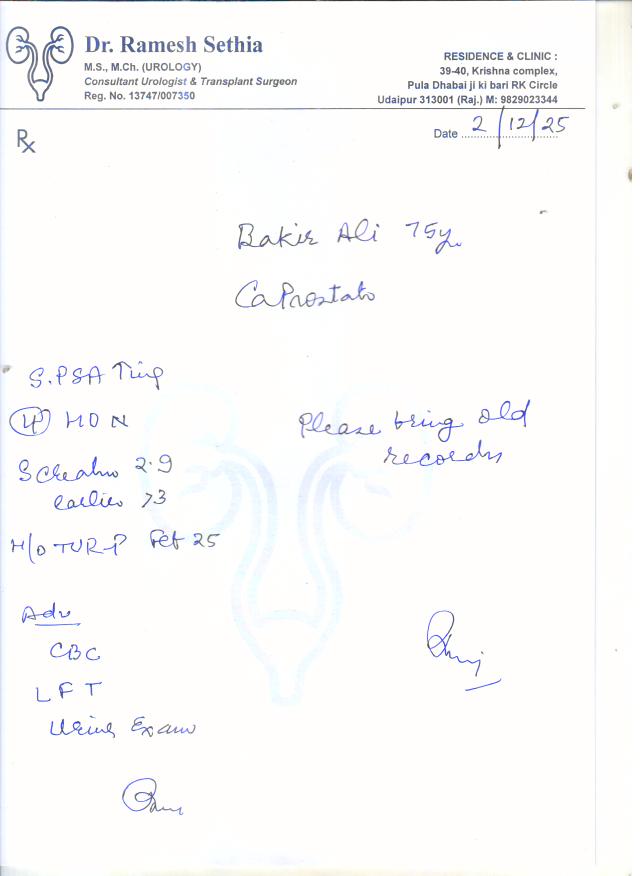 Dr. Ramesh Sethia
M.S., M.Ch. (UROLOGY)
Consultant Urologist & Transplant Surgeon
Reg. No. 13747/007350
RESIDENCE & CLINIC :
39-40, Krishna complex,
Pula Dhabai ji ki bari RK Circle
Udaipur 313001 (Raj.) M: 9829023344
Date 2/12/25
Rx
Bakir Ali 75y
Ca Prostate
S.PSA
HDN
S Creatin 2.9
earlier >3
H/O TURP Feb 25
Please bring old
records
Adv
CBC
LFT
Urine Exam